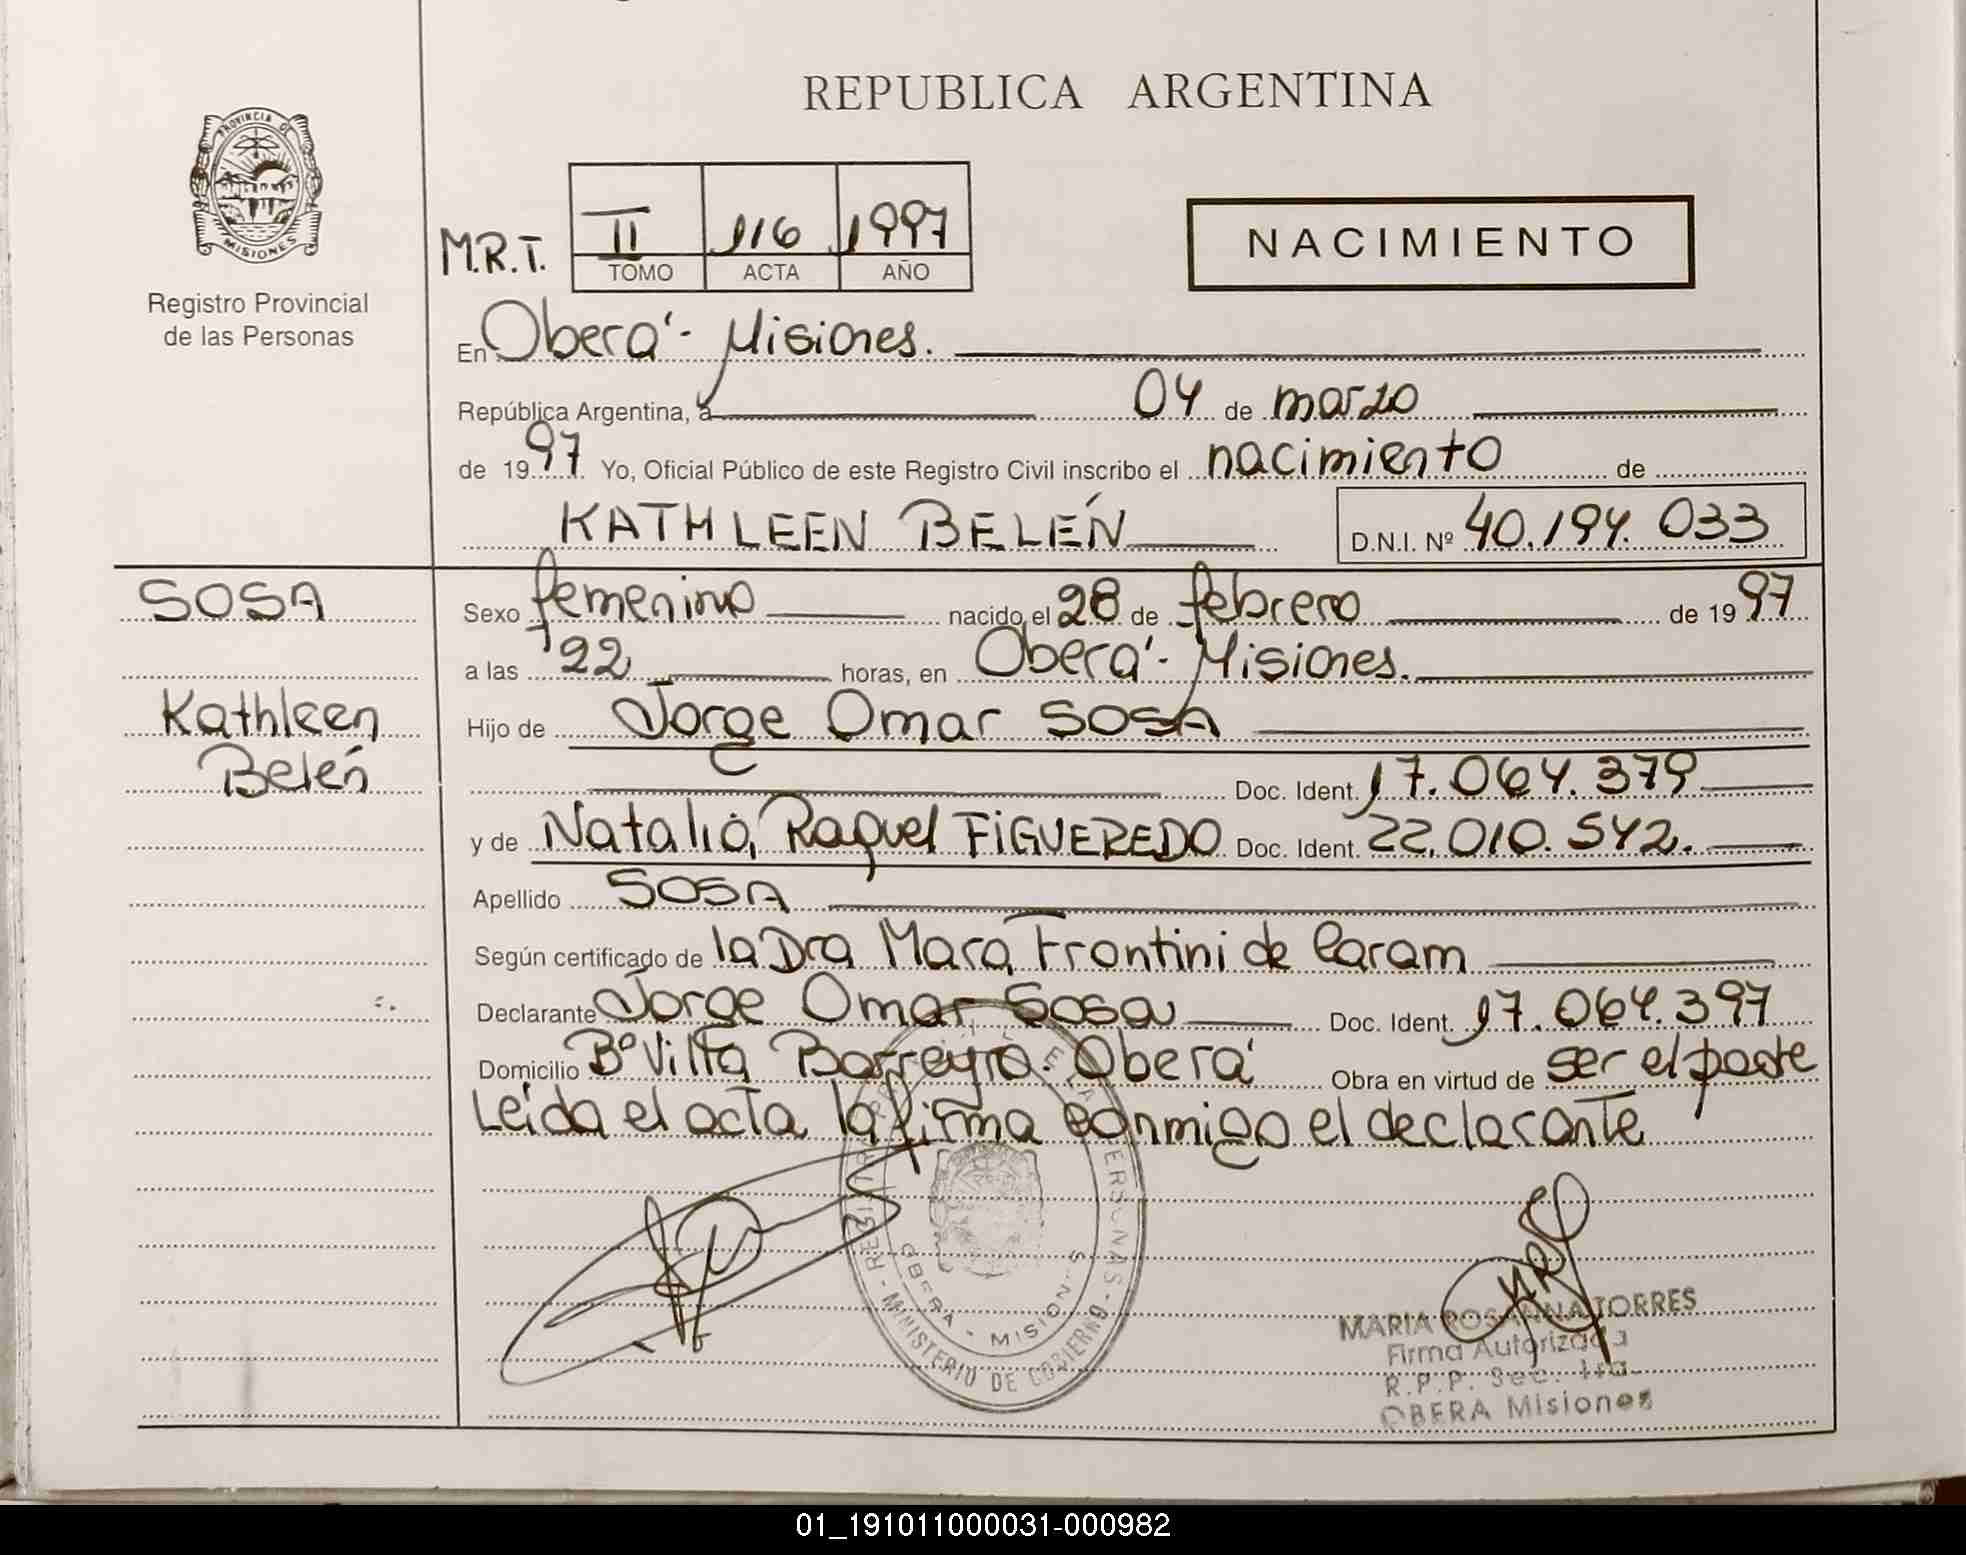 REPUBLICA ARGENTINA
PROVINCIA DE
MISIONES
Registro Provincial
de las Personas
M.R.T.
II 116 1997
TOMO ACTA AÑO
NACIMIENTO
En Oberá - Misiones.
República Argentina, a 04 de marzo
de 1997 Yo, Oficial Público de este Registro Civil inscribo el nacimiento de
KATHLEEN BELÉN D.N.I. Nº 40.194.033
SOSA
Kathleen
Belén
Sexo femenino nacido el 28 de febrero de 1997
a las 22 horas, en Oberá - Misiones.
Hijo de Jorge Omar SOSA
Doc. Ident. 17.064.379
y de Natalia Raquel FIGUEREDO Doc. Ident. 22.010.542.
Apellido SOSA
Según certificado de la Dra Mara Frontini de Caram
Declarante Jorge Omar Sosa Doc. Ident. 17.064.397
Domicilio Bº Villa Barreyro. Oberá Obra en virtud de ser el padre
Leída el acta la firma conmigo el declarante
OBERA - MISIONES
MINISTERIO DE GOBIERNO
MARIA ROSANNA TORRES
Firma Autorizada
R.P.P. Sec. 1ra.
OBERA Misiones
01_191011000031-000982